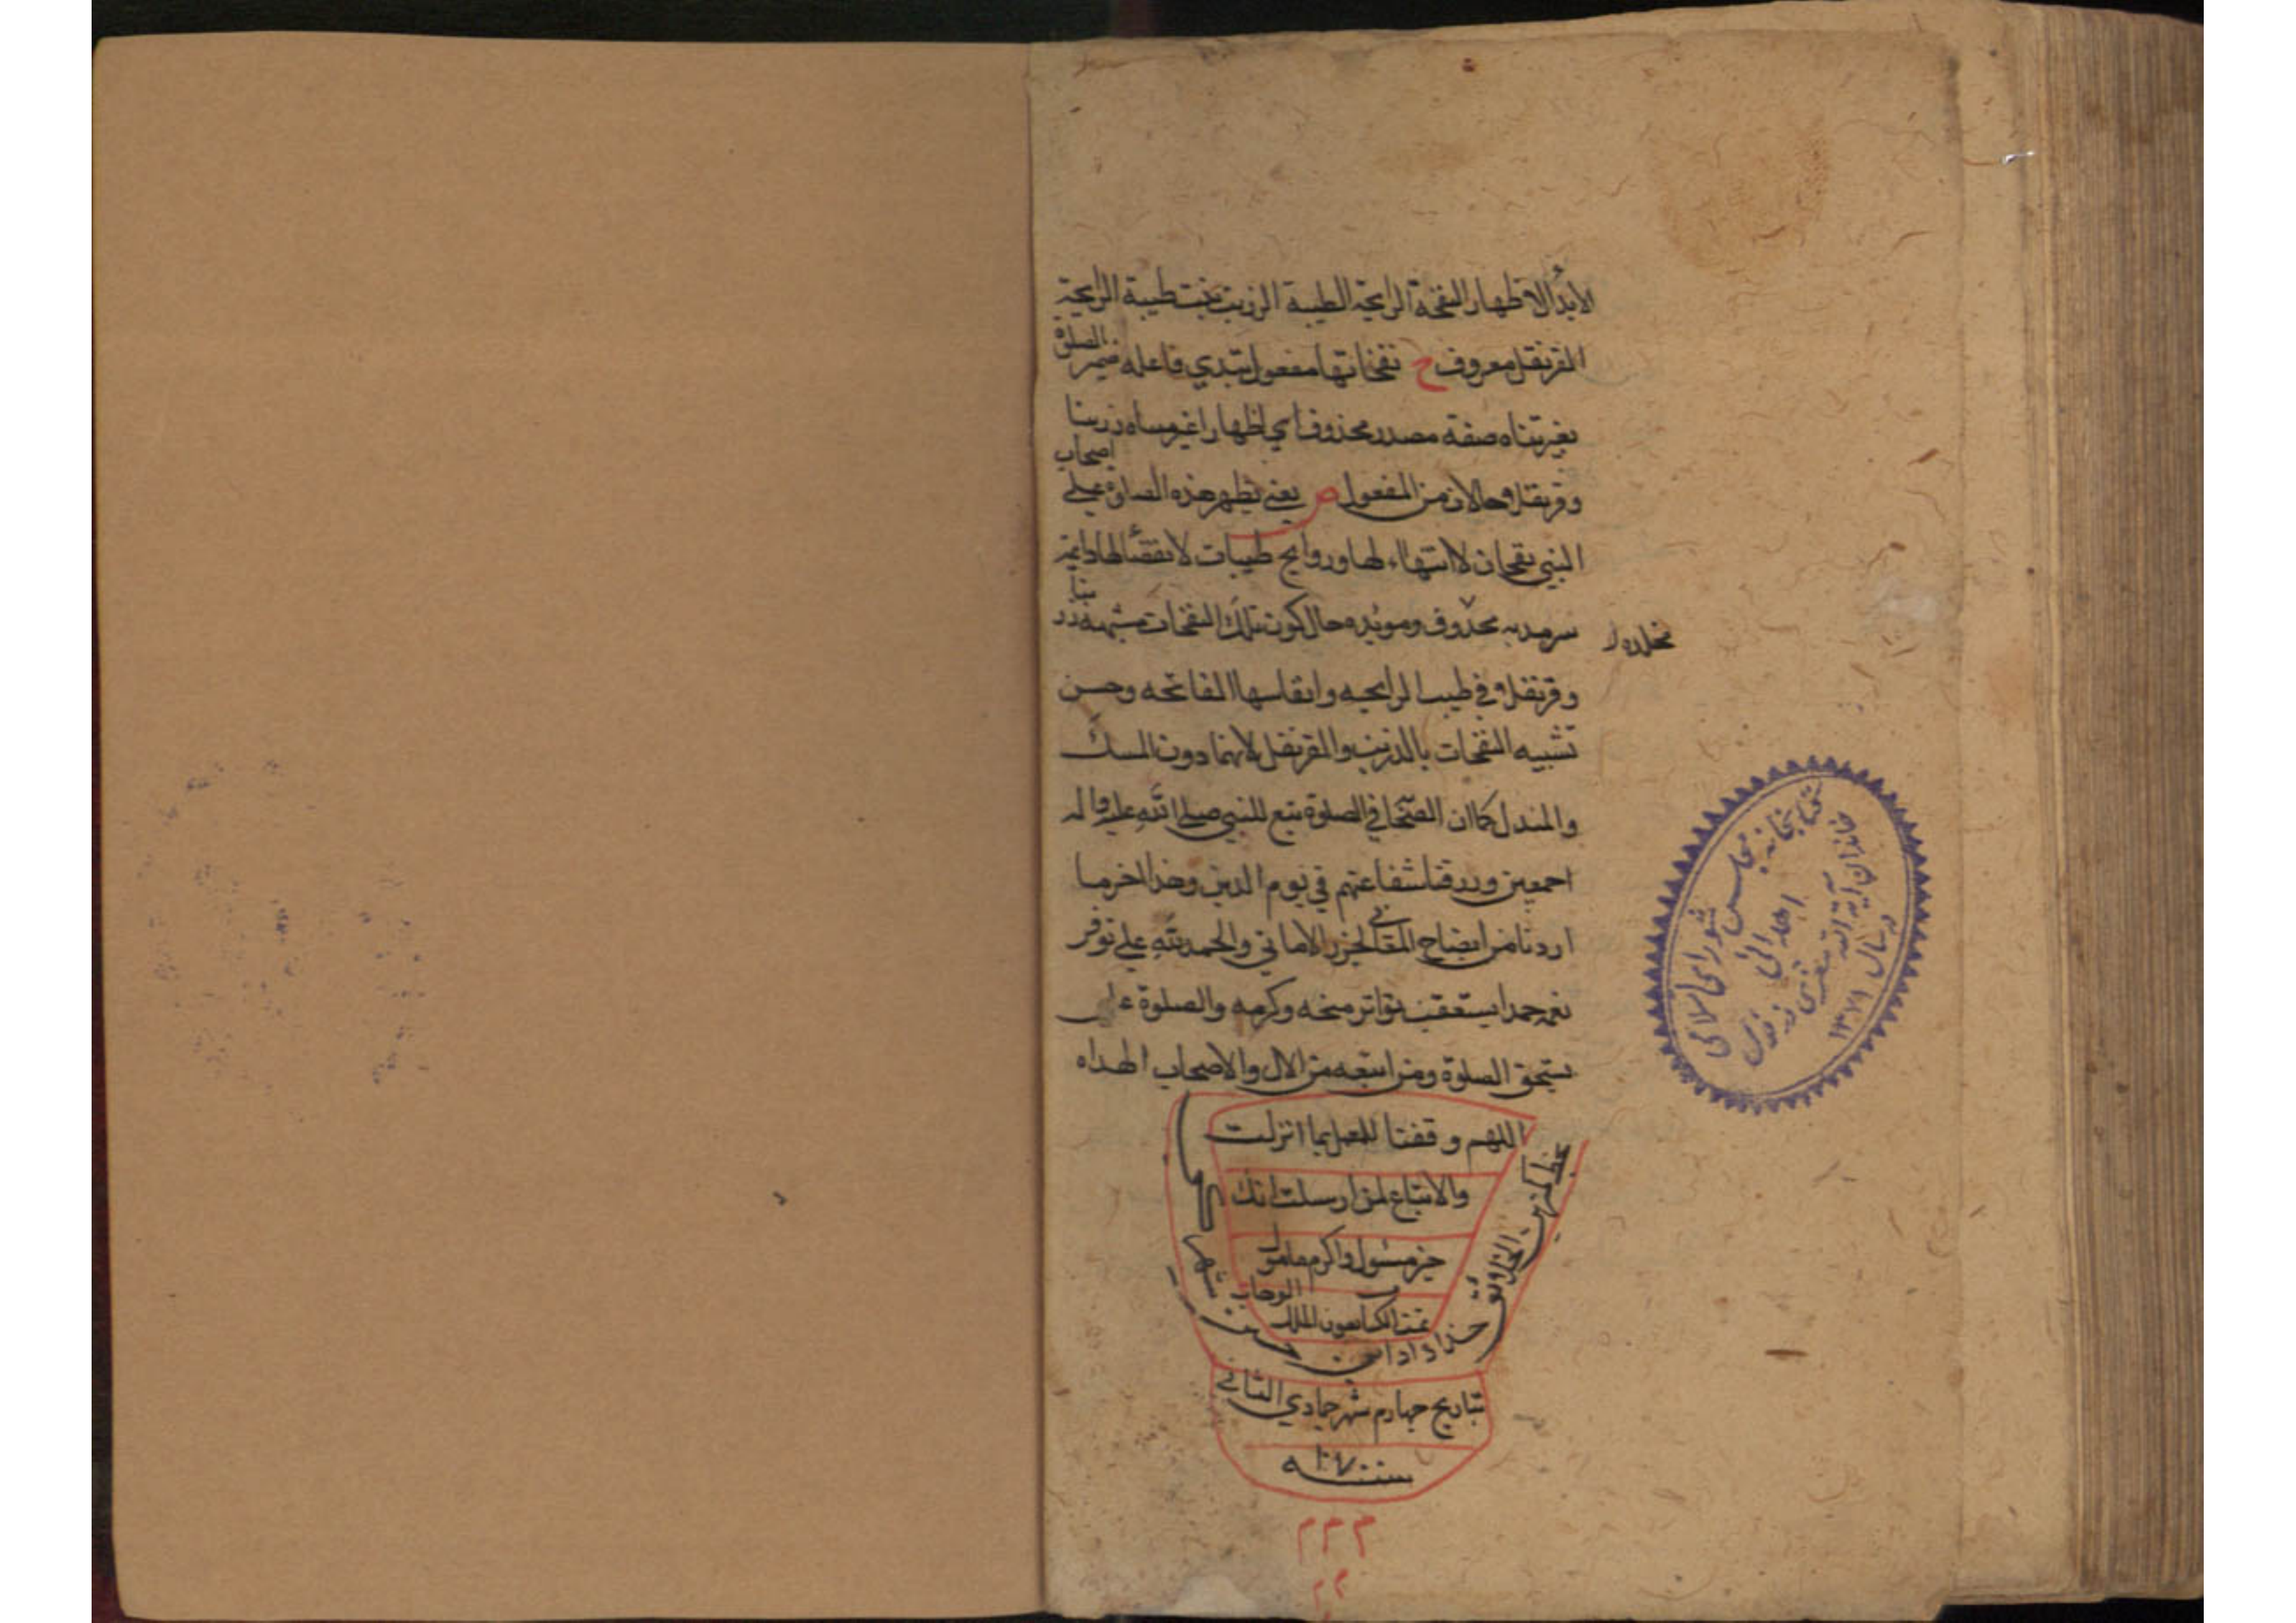 الابدأ الاظهار النفخة الرايحة الطيبة الزرنب نبت طيبة الرايحة
القرنفل معروف ح نفخاتها مفعول تبدي فاعله ضمير الصلوة
بغير تناه صفة مصدر محذوف اي اظهارا غير متناه زرنبا
وقرنفلا حالان من المفعول ص يعني يظهر هذه الصلوة على اصحاب
النبي نفحات لا انتهاء لها وروايح طيبات لا انقضا لها دايمة
سرمديه محذوف وموبده حال كون تلك النفخات مشبهة زرنبا
مخلده
وقرنفلا في طيب الرايحه وانفاسها الفاتحه وحسن
تشبيه النفحات بالزرنب والقرنفل لانهما دون المسك
والمندل كما ان الصحابة في الصلوة تبع للنبي صلى الله عليه واله
اجمعين ورزقنا شفاعتهم في يوم الدين وهذا اخر ما
اردنا من ايضاح المقاني لحرز الاماني والحمد لله على توفر
نعمه حمدا يستعقب تواتر منحه وكرمه والصلوة على
يستحق الصلوة ومن اتبعه من الال والاصحاب الهداه
اللهم وفقنا للعمل بما انزلت
والاتباع لمن ارسلت انك
خير مسئول واكرم مامول
تمت الكتاب بعون الملك الوهاب
خداداد ابن حسن
بتاريخ چهارم شهر جمادي الثاني
سنه ١٠٧٠
م م م
كتابخانه مجلس شوراى اسلامى
اهدائى
خاندان آية الله
در سال ١٣٧٩